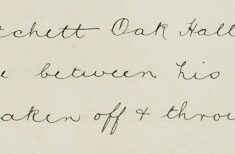 tchett Oak Hall
e between his
aken off & throw